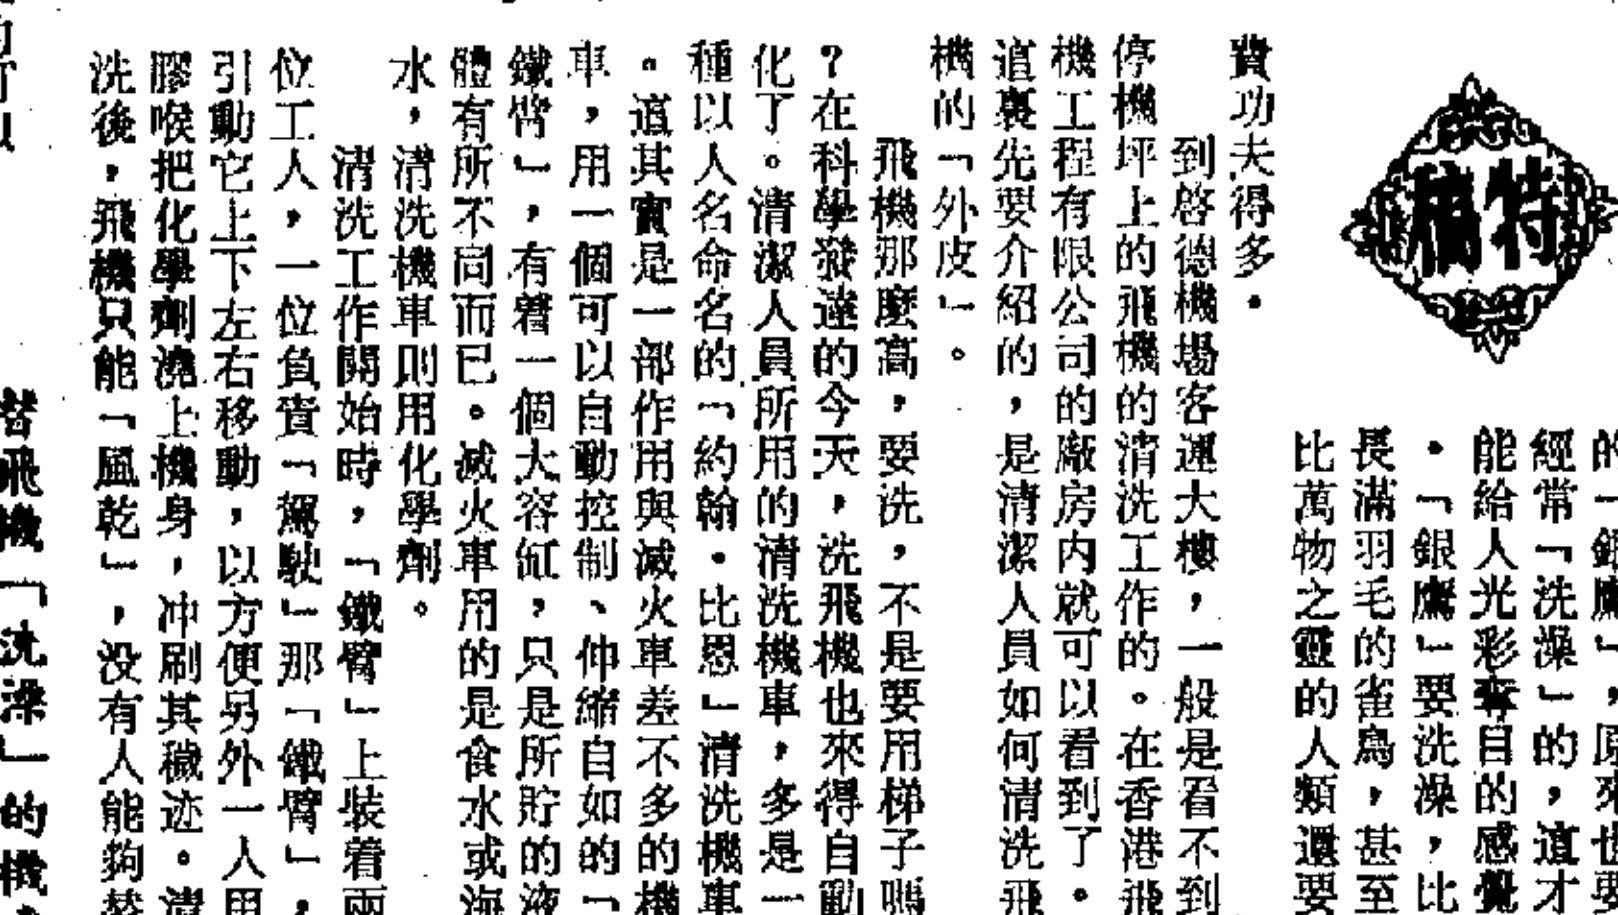 特稿
經常「洗澡」的，這才
能給人光彩奪目的感覺
。「銀鷹」要洗澡，比
長滿羽毛的雀鳥，甚至
比萬物之靈的人類還要
費功夫得多。
到啓德機場客運大樓，一般是看不到
停機坪上的飛機的清洗工作的。在香港飛
機工程有限公司的廠房内就可以看到了。
這裏先要介紹的，是清潔人員如何清洗飛
機的「外皮」。
飛機那麽高，要洗，不是要用梯子嗎
？在科學發達的今天，洗飛機也來得自動
化了。清潔人員所用的清洗機車，多是一
種以人名命名的「約翰．比恩」清洗機車
。這其實是一部作用與滅火車差不多的機
車，用一個可以自動控制、伸縮自如的「
鐵臂」，有着一個大容缸，只是所貯的液
體有所不同而已。滅火車用的是食水或海
水，清洗機車則用化學劑。
清洗工作開始時，「鐵臂」上裝着兩
位工人，一位負責「駕駛」那「鐵臂」，
引動它上下左右移動，以方便另外一人用
膠喉把化學劑澆上機身，冲刷其穢迹。清
洗後，飛機只能「風乾」，没有人能夠替
替飛機「洗澡」的機